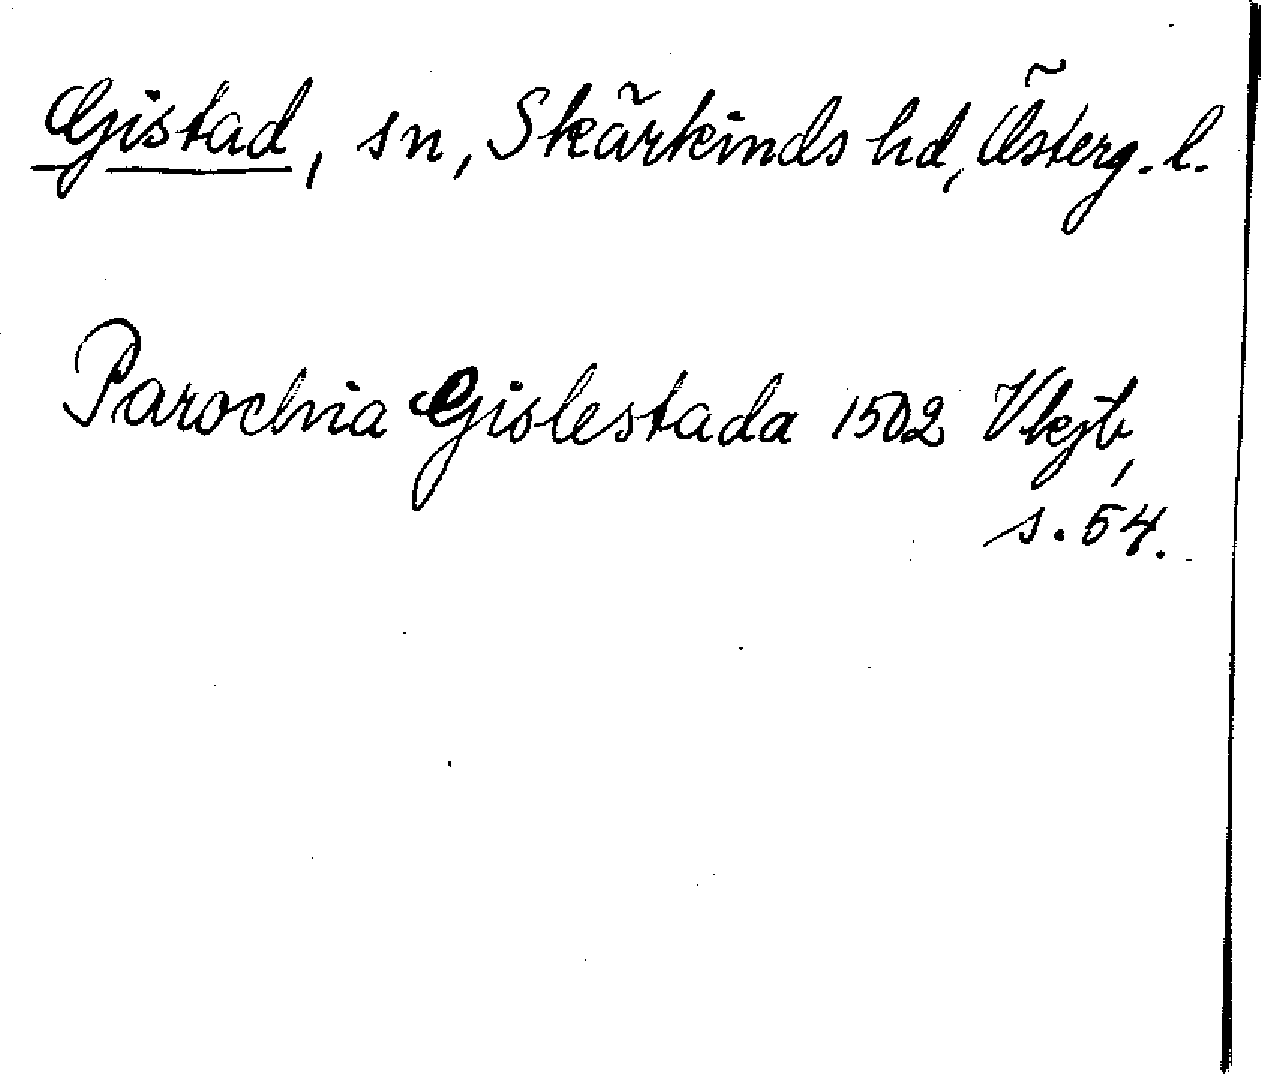 Gistad, sn, Skärkinds hd, Österg. l.
Parochia Gislestada 1502 Vkjb,
s. 54.